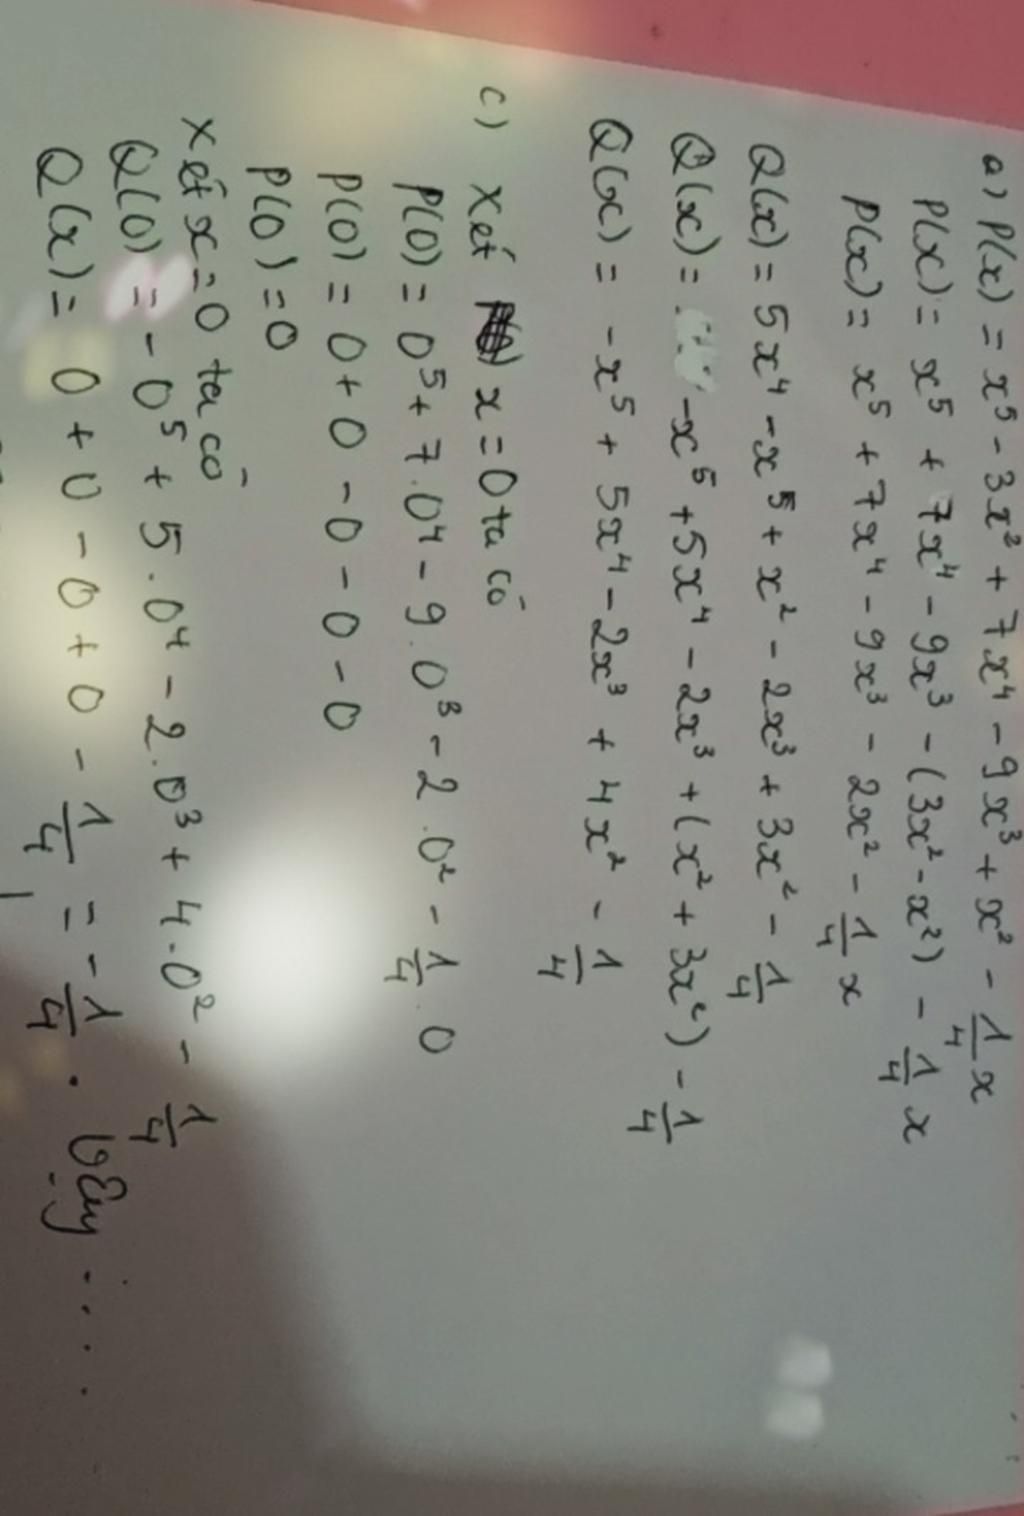 a) P(x) = x⁵ - 3x² + 7x⁴ - 9x³ + x² - 1/4 x
P(x) = x⁵ + 7x⁴ - 9x³ - (3x² - x²) - 1/4 x
P(x) = x⁵ + 7x⁴ - 9x³ - 2x² - 1/4 x
Q(x) = 5x⁴ - x⁵ + x² - 2x³ + 3x² - 1/4
Q(x) = -x⁵ + 5x⁴ - 2x³ + (x² + 3x²) - 1/4
Q(x) = -x⁵ + 5x⁴ - 2x³ + 4x² - 1/4
c) Xét x = 0 ta có
P(0) = 0⁵ + 7.0⁴ - 9.0³ - 2.0² - 1/4 . 0
P(0) = 0 + 0 - 0 - 0 - 0
P(0) = 0
Xét x = 0 ta có
Q(0) = -0⁵ + 5.0⁴ - 2.0³ + 4.0² - 1/4
Q(x) = 0 + 0 - 0 + 0 - 1/4 = -1/4 . Vậy ....